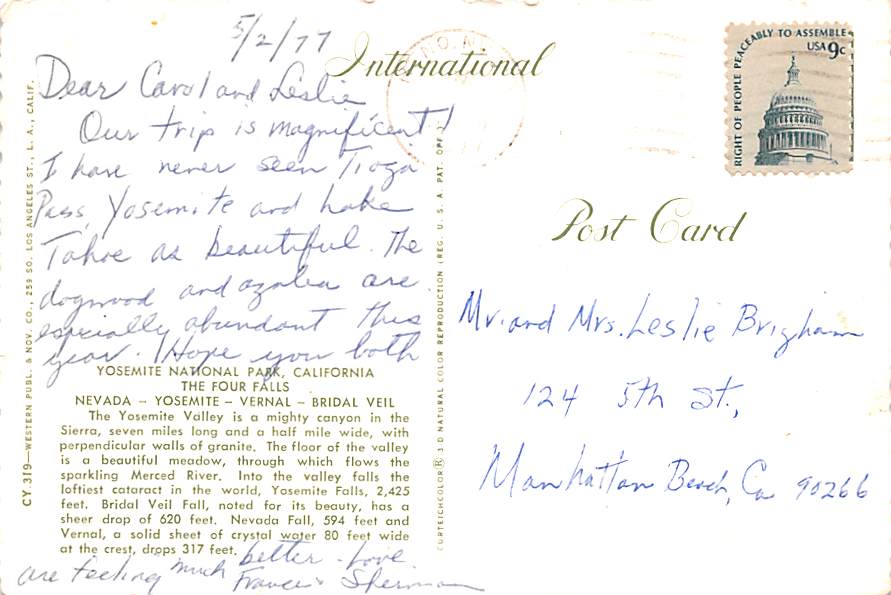 5/2/77
International
Dear Carol and Leslie
Our trip is magnificent!
I have never seen Tioga
Pass, Yosemite and Lake
Tahoe as beautiful. The
dogwood and azalea are
especially abundant this
year. I Hope you both
YOSEMITE NATIONAL PARK, CALIFORNIA
THE FOUR FALLS
NEVADA – YOSEMITE – VERNAL – BRIDAL VEIL
The Yosemite Valley is a mighty canyon in the
Sierra, seven miles long and a half mile wide, with
perpendicular walls of granite. The floor of the valley
is a beautiful meadow, through which flows the
sparkling Merced River. Into the valley falls the
loftiest cataract in the world, Yosemite Falls, 2,425
feet. Bridal Veil Fall, noted for its beauty, has a
sheer drop of 620 feet. Nevada Fall, 594 feet and
Vernal, a solid sheet of crystal water 80 feet wide
at the crest, drops 317 feet.
are feeling much better. Love.
Francis Sherman
CY.319—WESTERN PUBL. & NOV. CO., 259 SO. LOS ANGELES ST., L. A., CALIF.
CURTEICHCOLOR® 3-D NATURAL COLOR REPRODUCTION (REG. U. S. A. PAT. OFF.)
RIGHT OF PEOPLE PEACEABLY TO ASSEMBLE
USA 9c
Post Card
Mr. and Mrs. Leslie Brigham
124 5th St.,
Manhattan Beach, Ca 90266